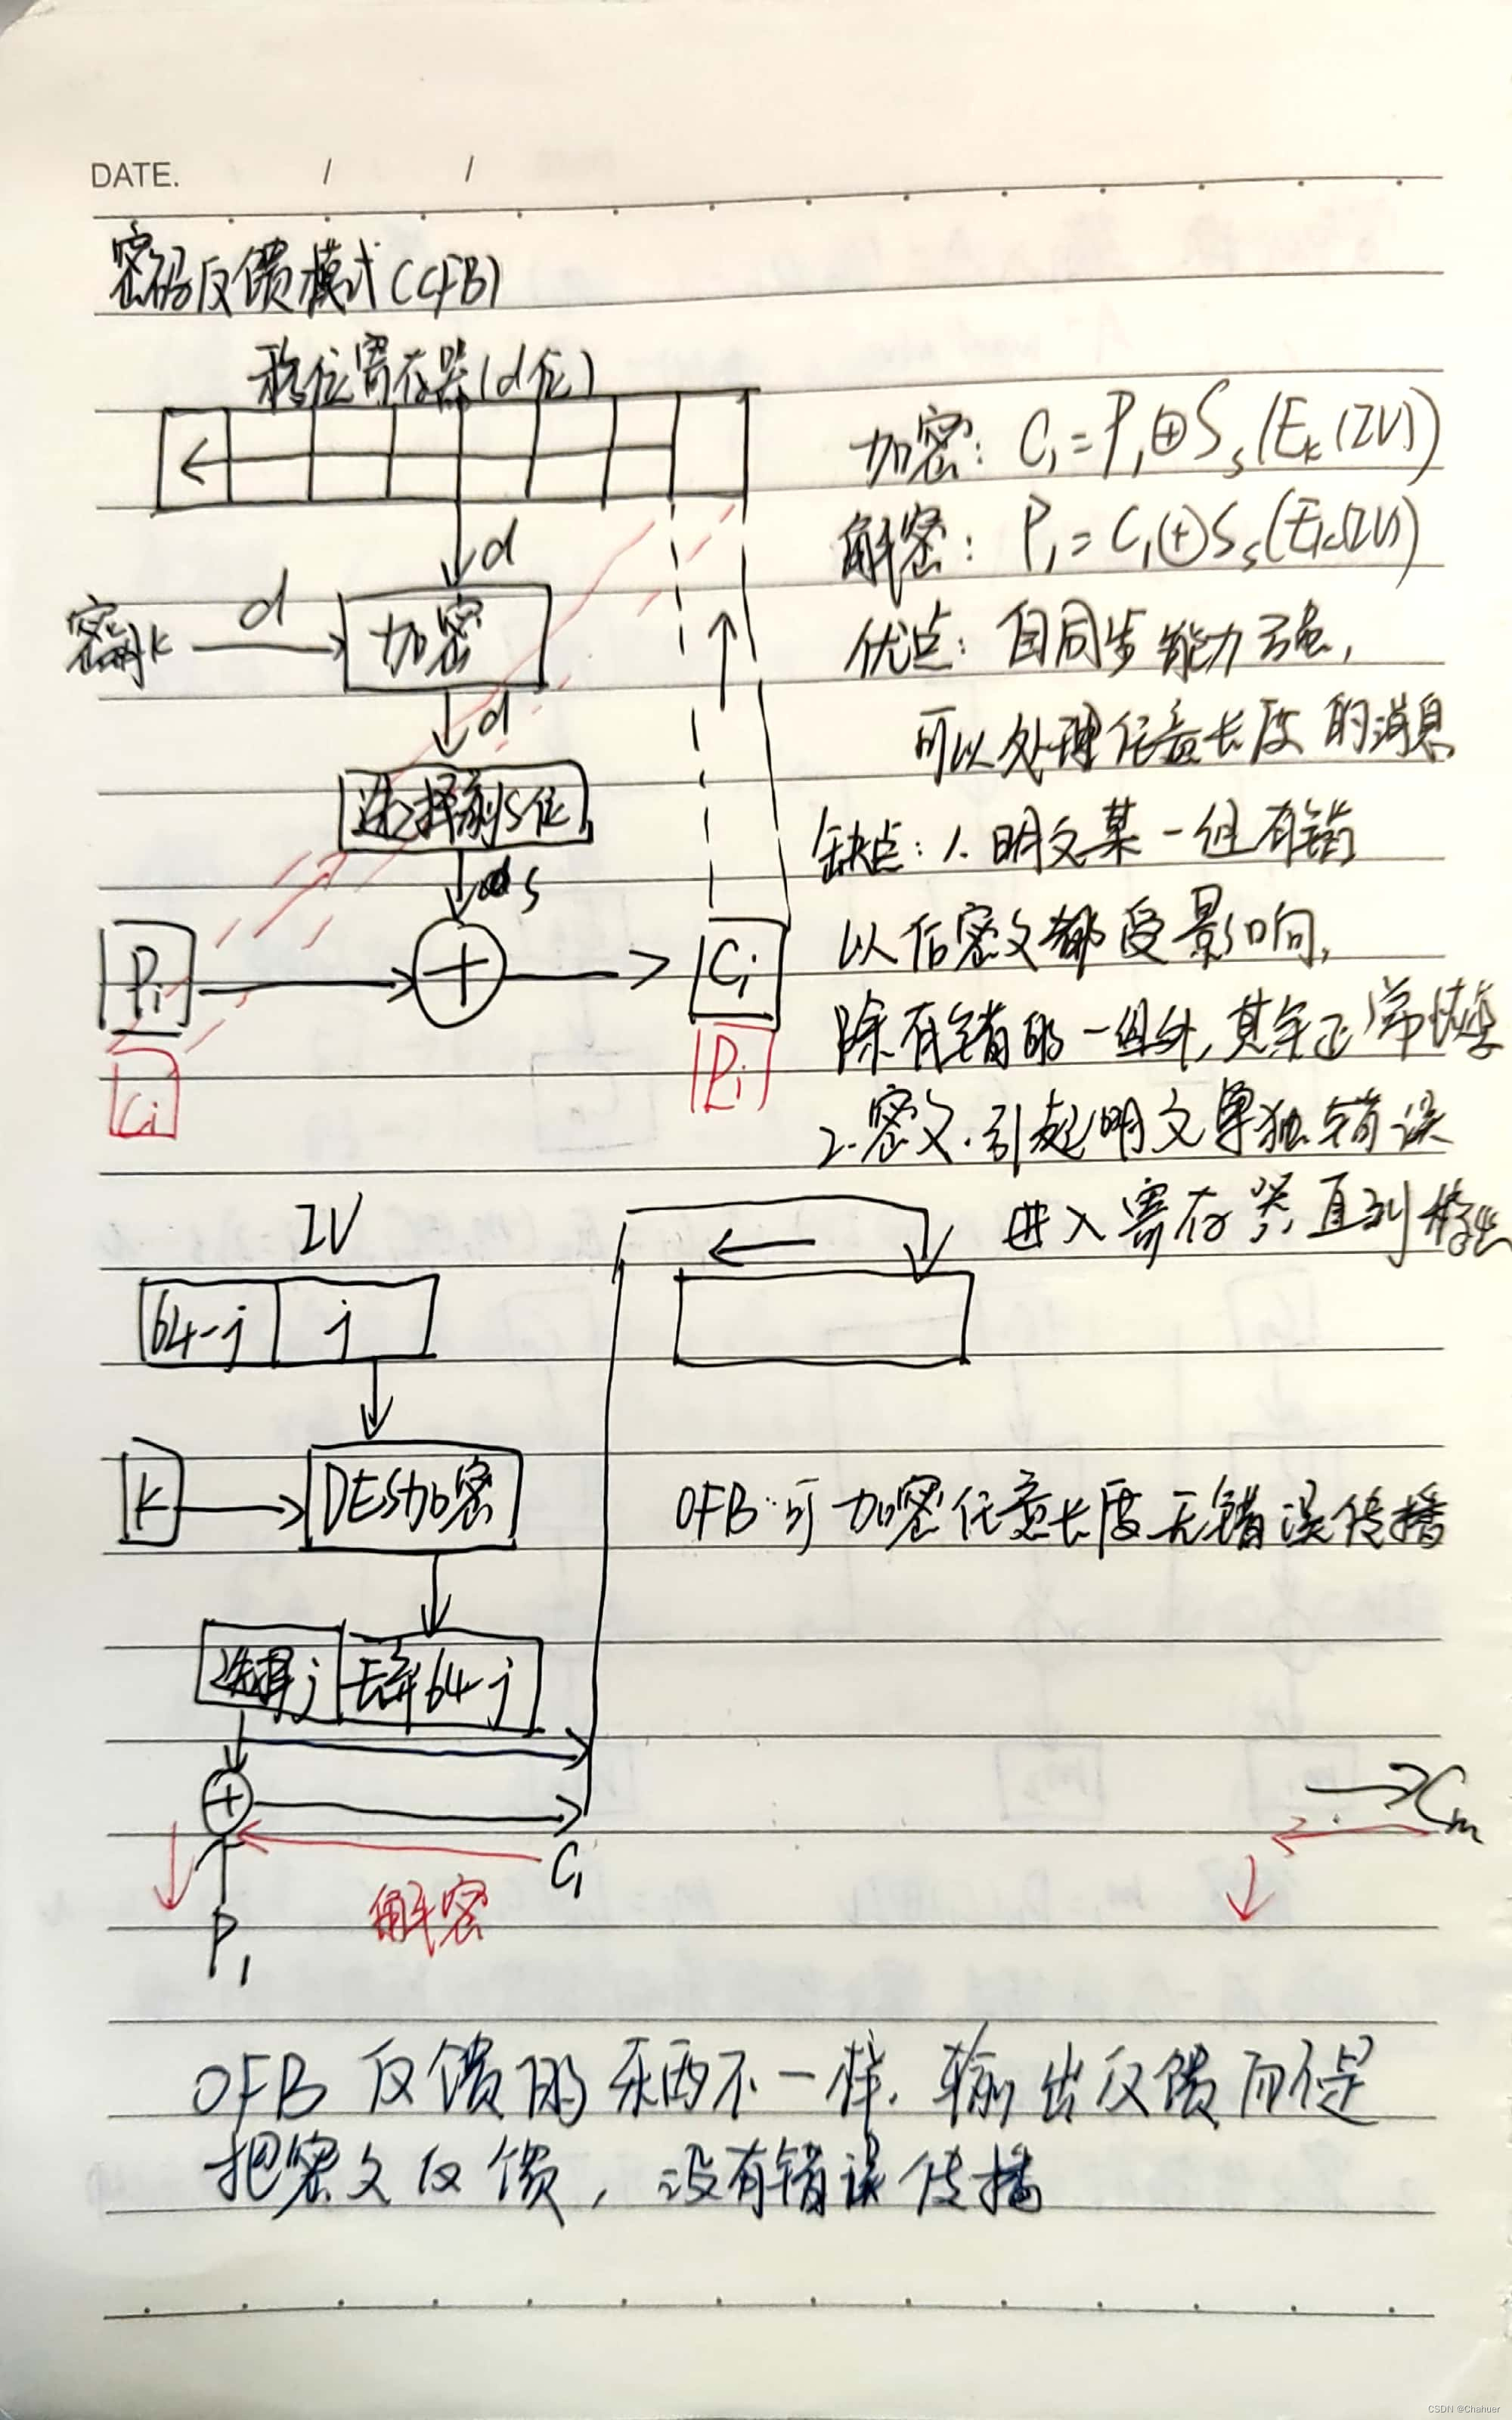 DATE. / /
密码反馈模式(CFB)
移位寄存器(d位)
加密: C₁=P₁⊕Sₛ(Eₖ(IV))
解密: P₁=C₁⊕Sₛ(Eₖ(IV))
d
密钥k d 加密
优点: 自同步能力强,
d
可以处理任意长度的消息
选择前s位
缺点: 1. 明文某一组有错
s
以后密文都受影响,
Pᵢ + Cᵢ
除有错的一组外,其余正常恢复
Cᵢ Pᵢ
2.密文.引起明文单独错误
进入寄存器,直到移出
IV
64-j j
k DES加密
OFB:可加密任意长度无错误传播
选择j 丢弃64-j
+
C₁ Cₘ
解密
P₁
OFB 反馈的东西不一样.输出反馈而不是
把密文反馈,没有错误传播
CSDN @Chahuer